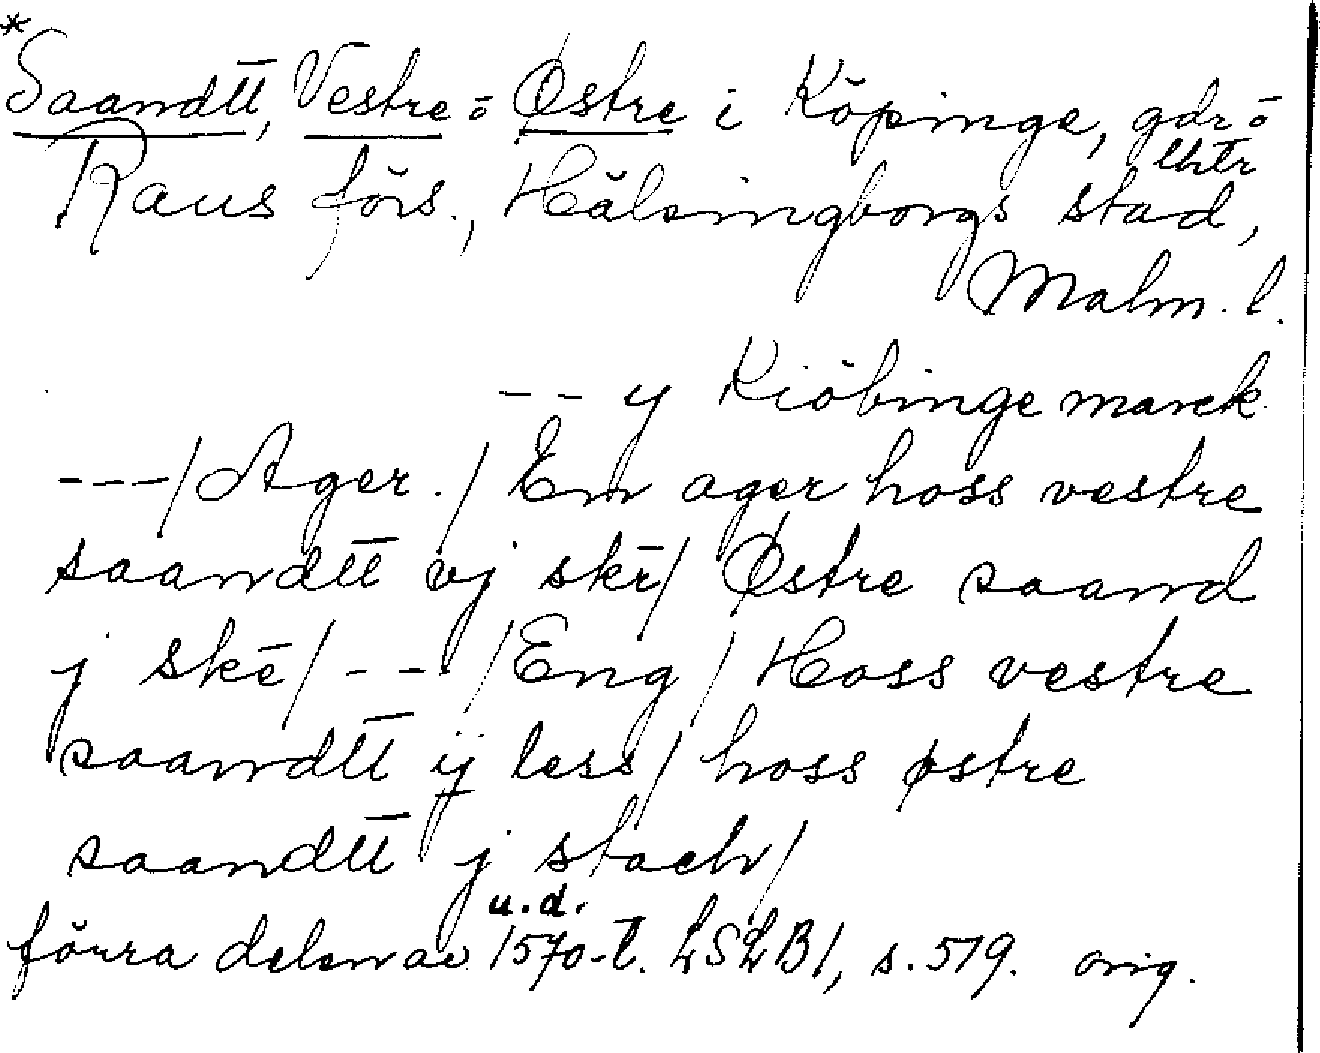 *Saandtt, Vestre o Østre i Köpinge, gdr o
lhtr
Raus förs., Hälsingborgs stad,
Malm. l.
-- y Kiöbinge marck
---/ Ager./ Em ager hoss vestre
saandtt vj skē/ Østre saand
j skē/ -- /Eng/ Hoss vestre
saandtt ij less/ hoss østre
saandtt j stach/
u.d.
förra delen av 1570-t. LSLB1, s. 519. orig.